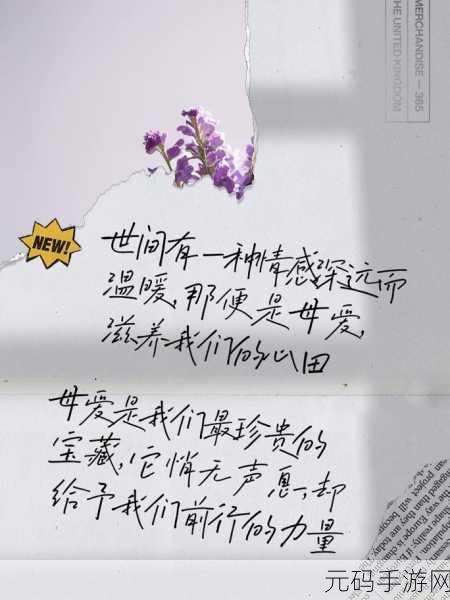 MERCHANDISE — 365
THE UNITED KINGDOM
NEW!
世间有一种情感深远而
温暖,那便是母爱,
滋养我们的心田
母爱是我们最珍贵的
宝藏,它悄无声息,却
给予我们前行的力量
元码手游网